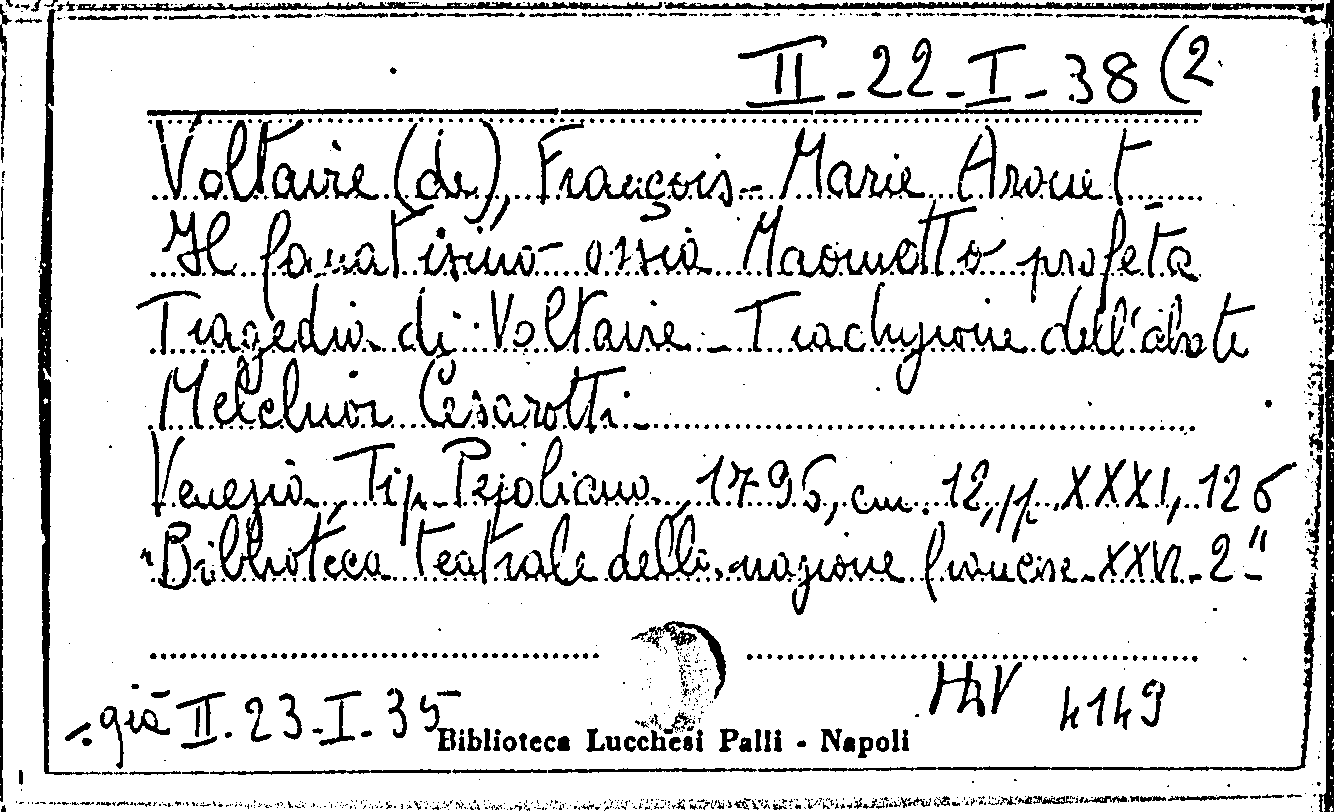 II-22-I-38 (2
Voltaire (de), François-Marie Arouet
Il fanatismo ossia Maometto profeta
Tragedia di Voltaire - Traduzione dell'abate
Melchior Cesarotti.
Venezia, Tip. Pepoliana, 1795, cm. 12, pp. XXXI, 126
"Biblioteca teatrale della nazione francese XXVI-2"
già II-23-I-35
4149
Biblioteca Lucchesi Palli - Napoli